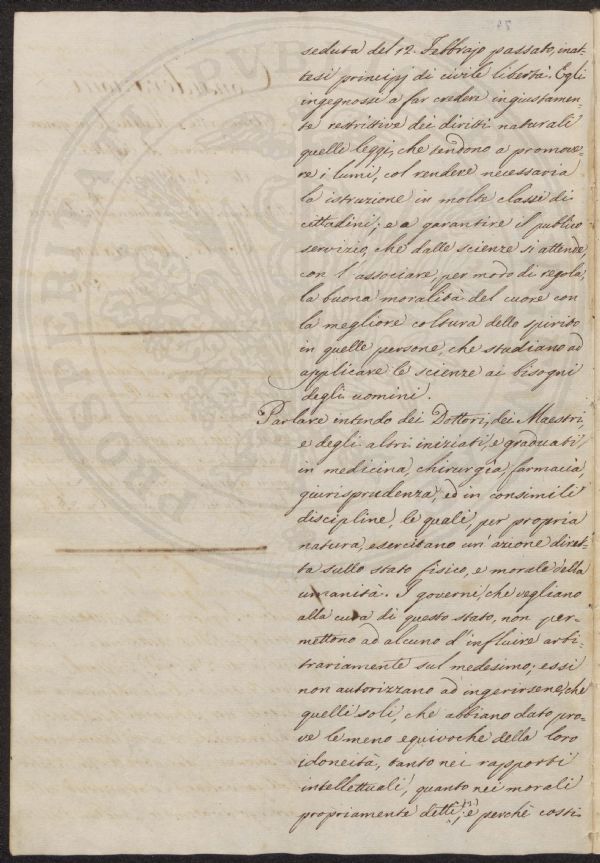 seduta del 12. Febbrajo passato, inat-
tesi principj di civile libertà. Egli
ingegnossi a far credere ingiustamen-
te restrittive dei diritti naturali
quelle leggi, che tendono a promove-
re i lumi, col rendere necessaria
la istruzione in molte classi di
cittadini; e a garantire il publico
servizio, che dalle scienze si attende,
con l'associare, per modo di regola,
la buona moralità del cuore con
la megliore coltura dello spirito
in quelle persone, che studiano ad
applicare le scienze ai bisogni
degli uomini.
Parlare intendo dei Dottori, dei Maestri,
e degli altri iniziati, e graduati
in medicina, chirurgia, farmacia,
giurisprudenza, ed in consimili
discipline, le quali, per propria
natura, esercitano un'azione diret-
ta sullo stato fisico, e morale della
umanità. I governi, che vegliano
alla cura di questo stato, non per-
mettono ad alcuno d'influire arbi-
trariamente sul medesimo; essi
non autorizzano ad ingerirsene, che
quelli soli, che abbiano dato pro-
ve le meno equivoche della loro
idoneità, tanto nei rapporti
intellettuali, quanto nei morali
propriamente detti; e perchè costi-
PROSPERITA
PVB